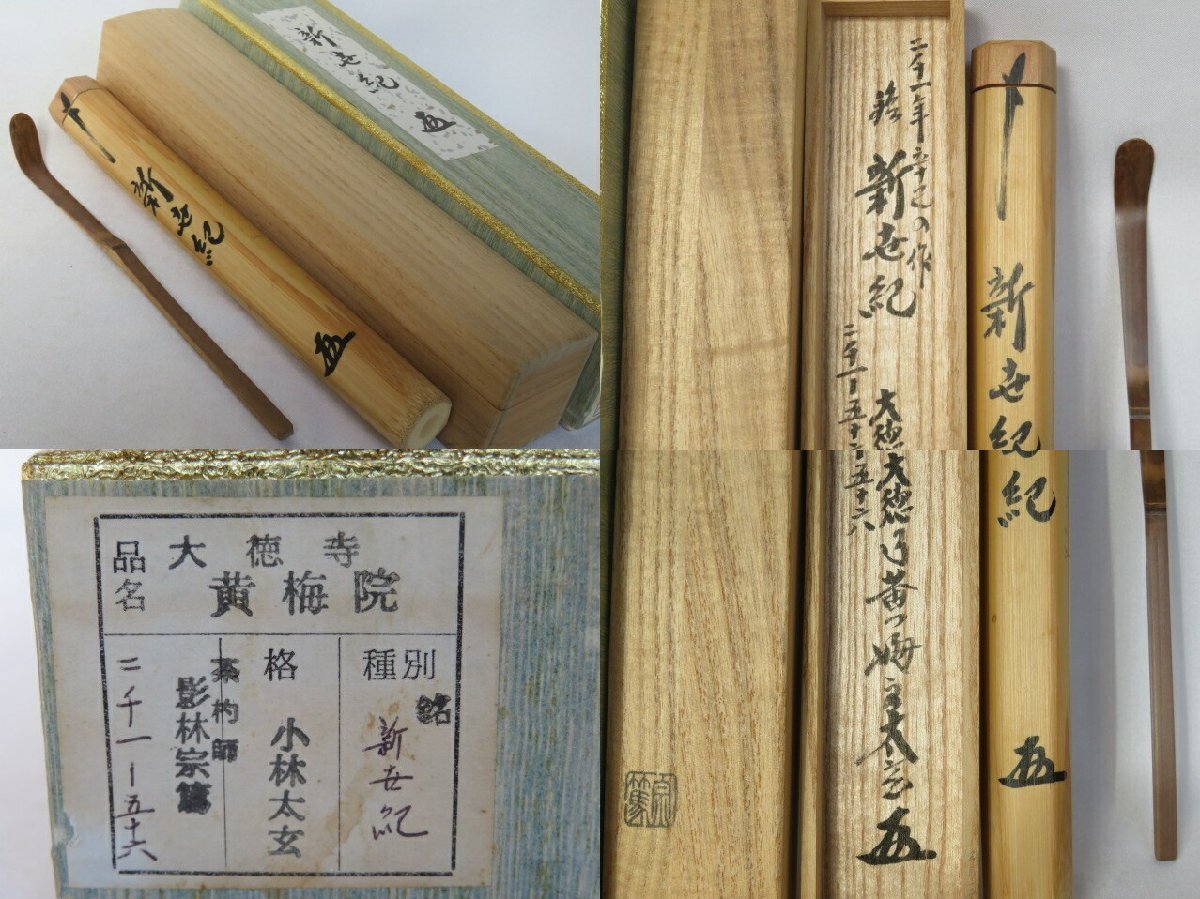 新世紀
新世紀
品名
大徳寺
黄梅院
種別
銘
新世紀
格
小林太玄
茶杓師
影林宗篤
二千一ー五十六
二千一年辛巳の作
銘
新世紀
二千一ー五十二ー五十六
大徳
大徳
黄梅主太玄
新世紀
紀
宗篤